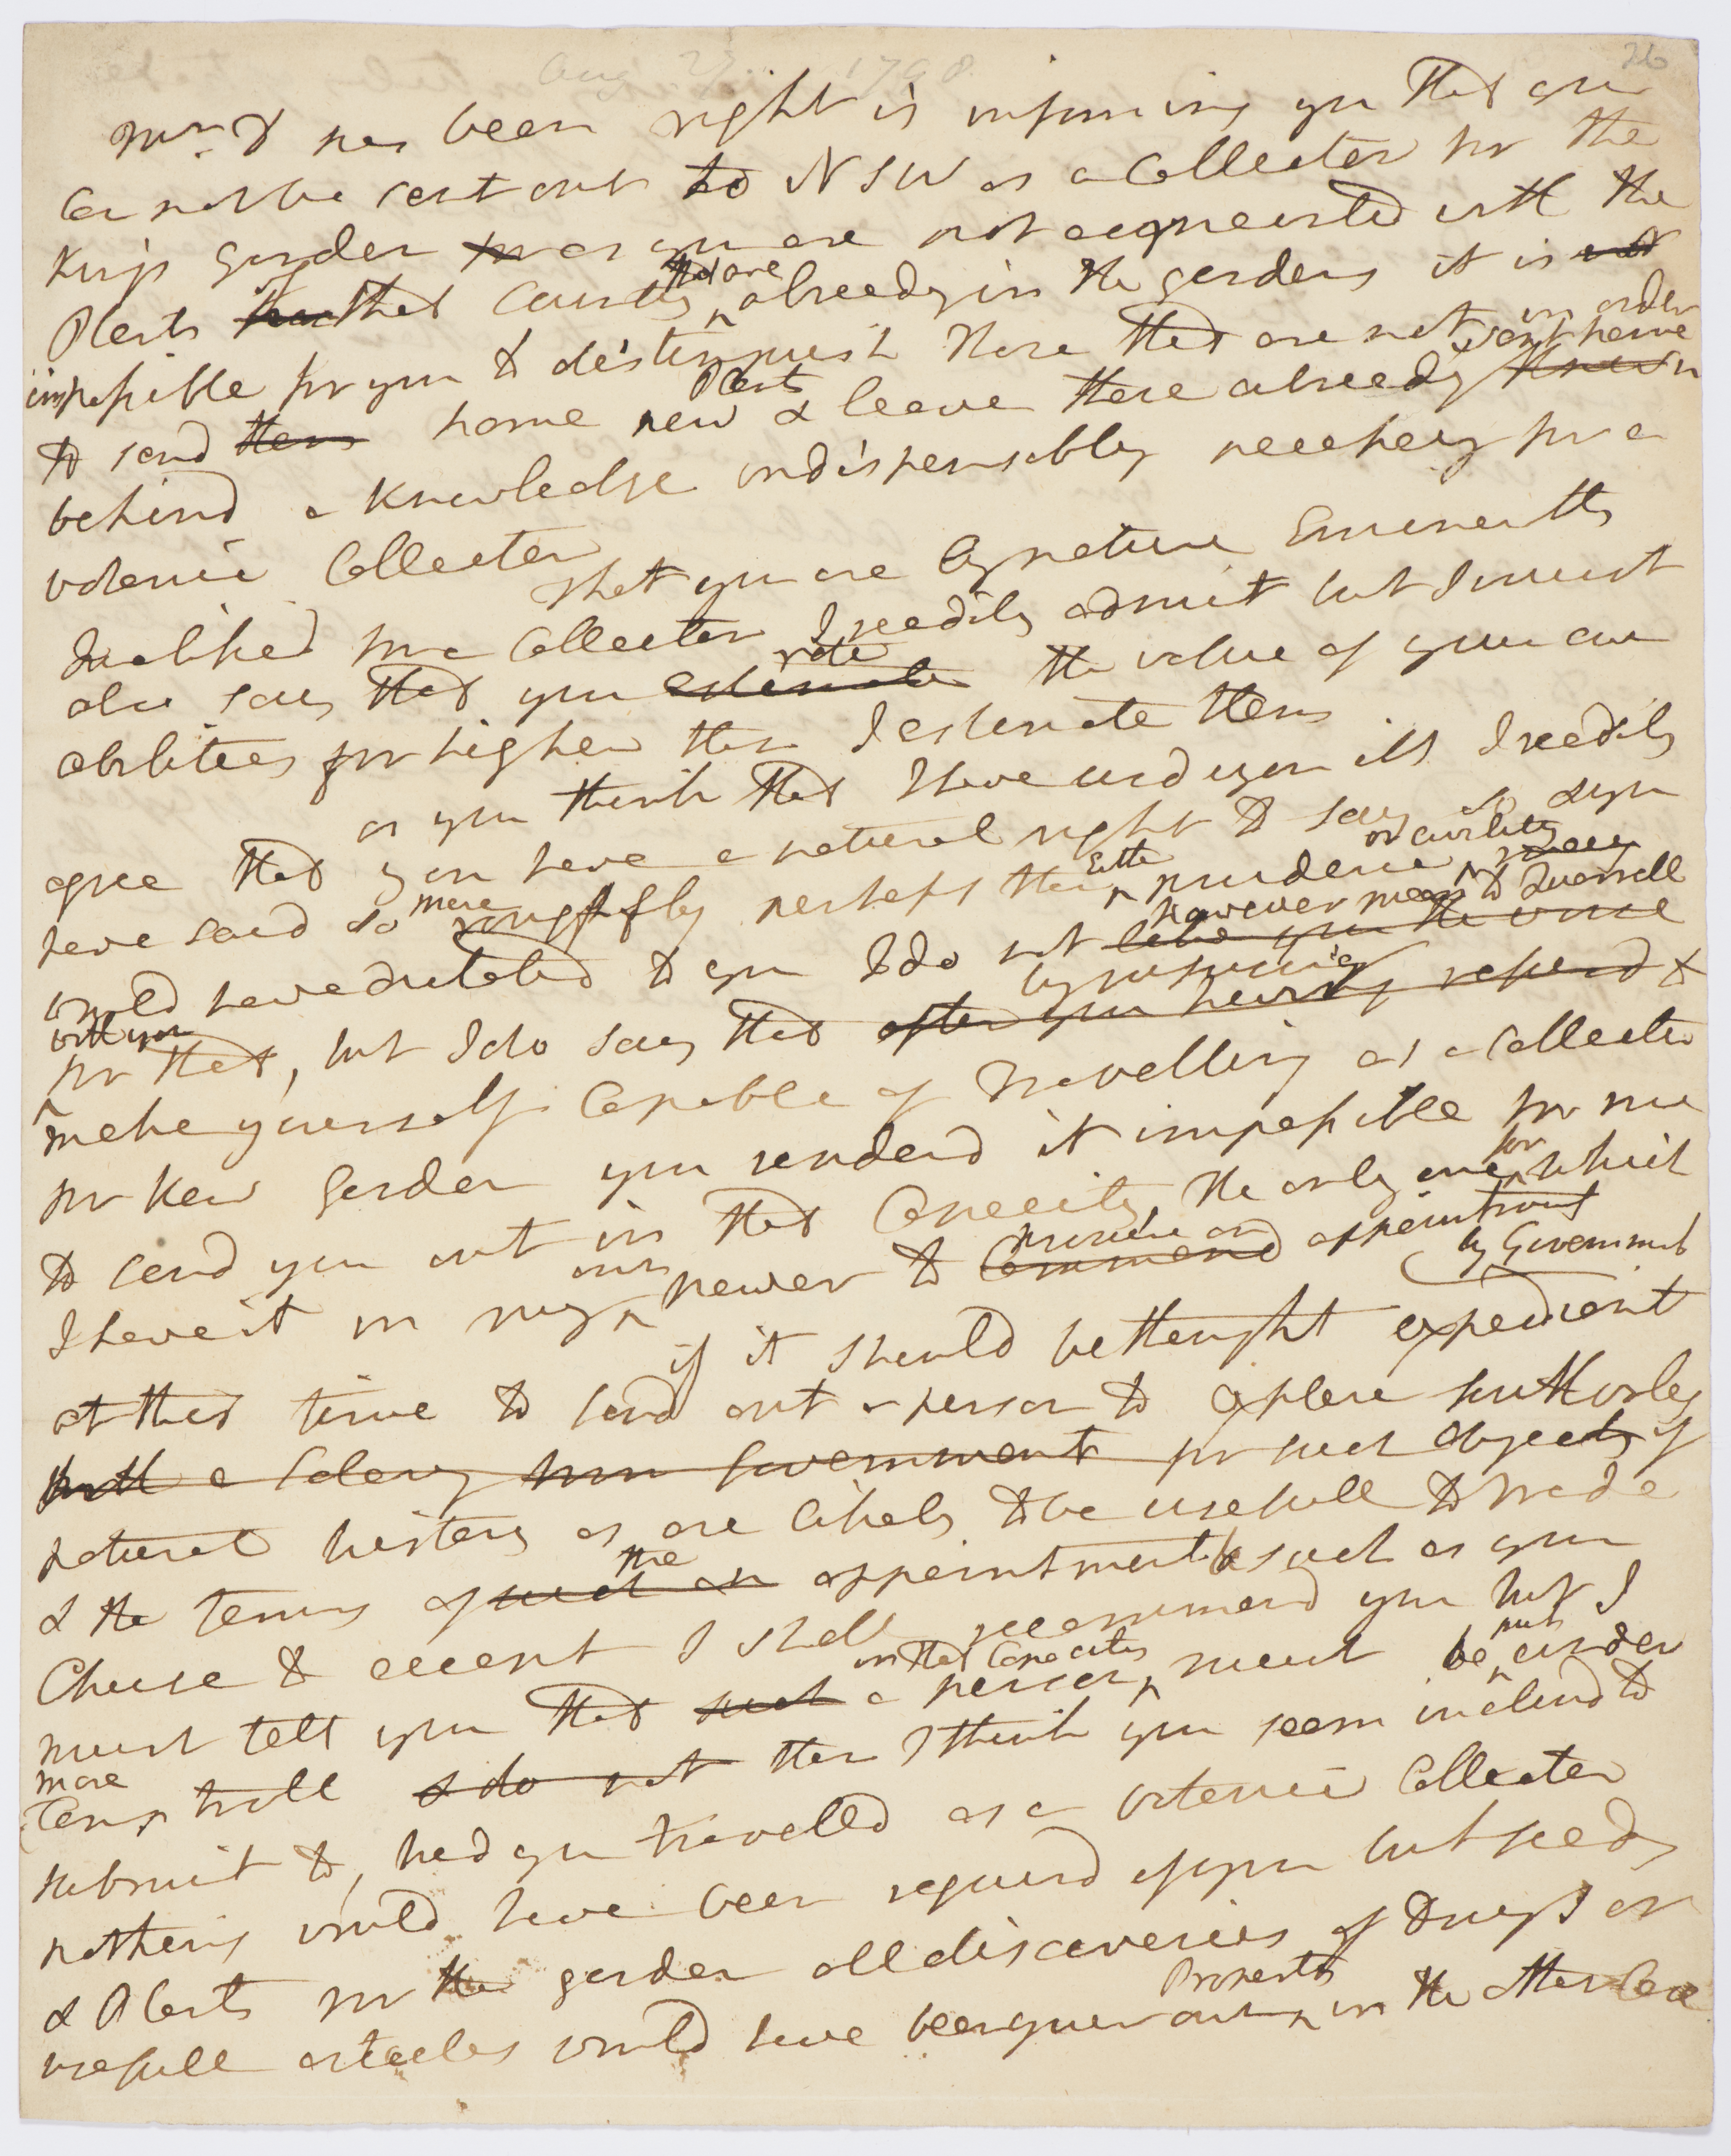 Aug 27 1798
26
Mr. D has been right in informing you that you
Can not be sent out to N S W as a Collector for the
Kings Garden for as you are not acquainted with the
Plants from that Country that are already in the gardens it is not
impossible for you to distinguish those that are not in order
to send them home new Plants & leave those already sent home known
behind a Knowledge indispensably necessary for a
botanic Collector
That you are by nature Eminently
Qualified for a Collector I readily admit but I must
also say that you estimate rate the value of your own
abilities far higher than I estimate them
as you think that I have usd you ill I readily
agree that you have a natural right to say so & you
have said so more roughly perhaps than Either prudence or civility
would have dictated to you I do not however mean to Quarrell like you the worse
with you for that, but I do say that by refusing after you having refused to
make yourself Capable of Travelling as a Collector
for Kew Garden you renderd it impossible for me
to send you out in that Capacity, the only one for which
I have it in my own power to Command promise an appointment
by Government
if it should be thought expedient
at this time to send out a person to explore further only
with a Salary from Government for such objects of
natural history as are likely to be usefull to Trade
& the terms of such an the appointment be such as you
Chuse to accept I shall recommend you but I
must tell you that such a person in that Capacity must be put under
more Controll & do not than I think you seem inclind to
submit to, had you travelled as a botanic Collector
nothing would have been requird of you but seeds
& Plants for the garden all discoveries of drugs or
usefull articles would have been your own Property in the other Case